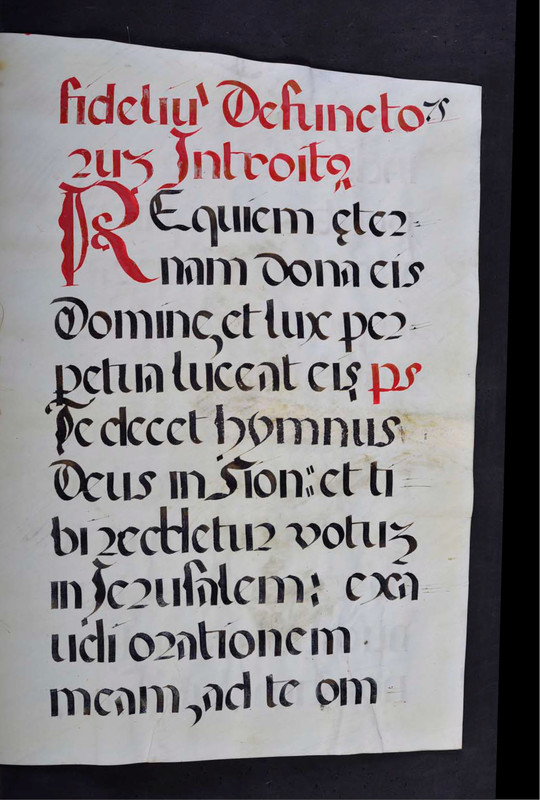 fideliu' Defuncto
ruz Introitꝯ
REquiem ęter=
nam dona eis
Domine, et lux per=
petua luceat eis ps
Te decet hymnus
Deus in Sion: et ti=
bi reddetur votuz
in Jeruſalem: exa=
udi orationem
meam, ad te om=